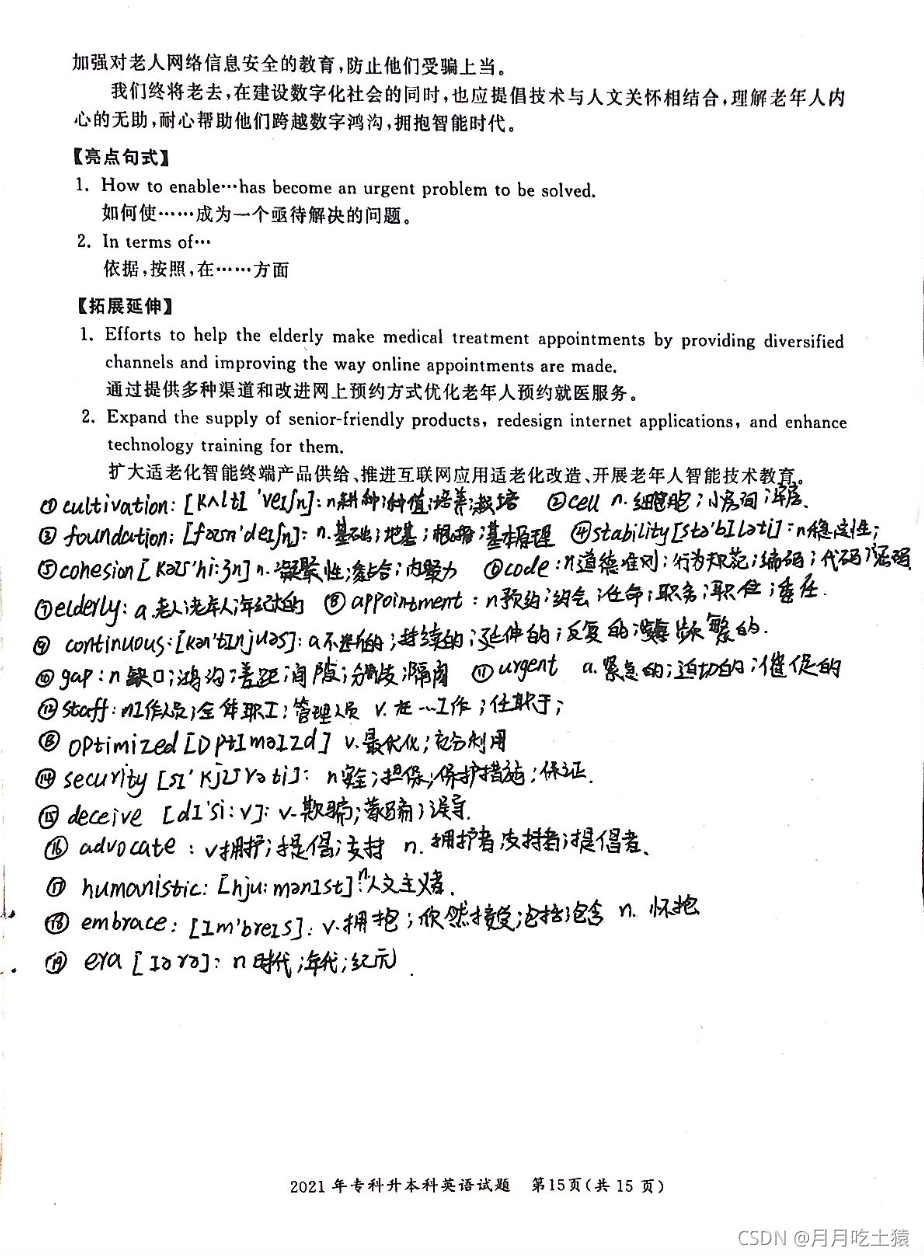 加强对老人网络信息安全的教育,防止他们受骗上当。
我们终将老去,在建设数字化社会的同时,也应提倡技术与人文关怀相结合,理解老年人内
心的无助,耐心帮助他们跨越数字鸿沟,拥抱智能时代。
【亮点句式】
1. How to enable…has become an urgent problem to be solved.
如何使……成为一个亟待解决的问题。
2. In terms of…
依据,按照,在……方面
【拓展延伸】
1. Efforts to help the elderly make medical treatment appointments by providing diversified
channels and improving the way online appointments are made.
通过提供多种渠道和改进网上预约方式优化老年人预约就医服务。
2. Expand the supply of senior-friendly products, redesign internet applications, and enhance
technology training for them.
扩大适老化智能终端产品供给、推进互联网应用适老化改造、开展老年人智能技术教育。
① cultivation: [kʌltɪ'veɪʃn]: n耕种;种植;培养;栽培 ② cell n. 细胞;小房间;牢房.
③ foundation: [faʊn'deɪʃn]: n.基础;地基;根据;基本原理 ④ stability [stə'bɪləti]: n稳定性;
⑤ cohesion [kəʊ'hi:ʒn] n. 凝聚性;黏合;内聚力 ⑥ code: n道德准则;行为规范;编码;代码;密码
⑦ elderly: a.老人;老年人;年纪大的 ⑧ appointment: n预约;约会;任命;职务;职位;委任
⑨ continuous: [kən'tɪnjuəs]: a不断的;持续的;延伸的;反复的;频繁的.
⑩ gap: n缺口;鸿沟;差距;间隙;分歧;隔阂 ⑪ urgent a.紧急的;迫切的;催促的
⑫ staff: n工作人员;全体职工;管理人员 v. 在…工作;任职于;
⑬ optimized [ɒptɪmaɪzd] v.最优化;充分利用
⑭ security [sɪ'kjʊrəti]: n安全;担保;保护措施;保证.
⑮ deceive [dɪ'si:v]: v.欺骗;蒙骗;误导.
⑯ advocate: v拥护;提倡;支持 n. 拥护者;支持者;提倡者.
⑰ humanistic: [hju:mənɪst]: n.人文主义者.
⑱ embrace: [ɪm'breɪs]: v.拥抱;欣然接受;包括;包含 n. 怀抱
⑲ era [ɪərə]: n时代;年代;纪元.
2021年专科升本科英语试题 第15页(共15页)
CSDN @月月吃土猿